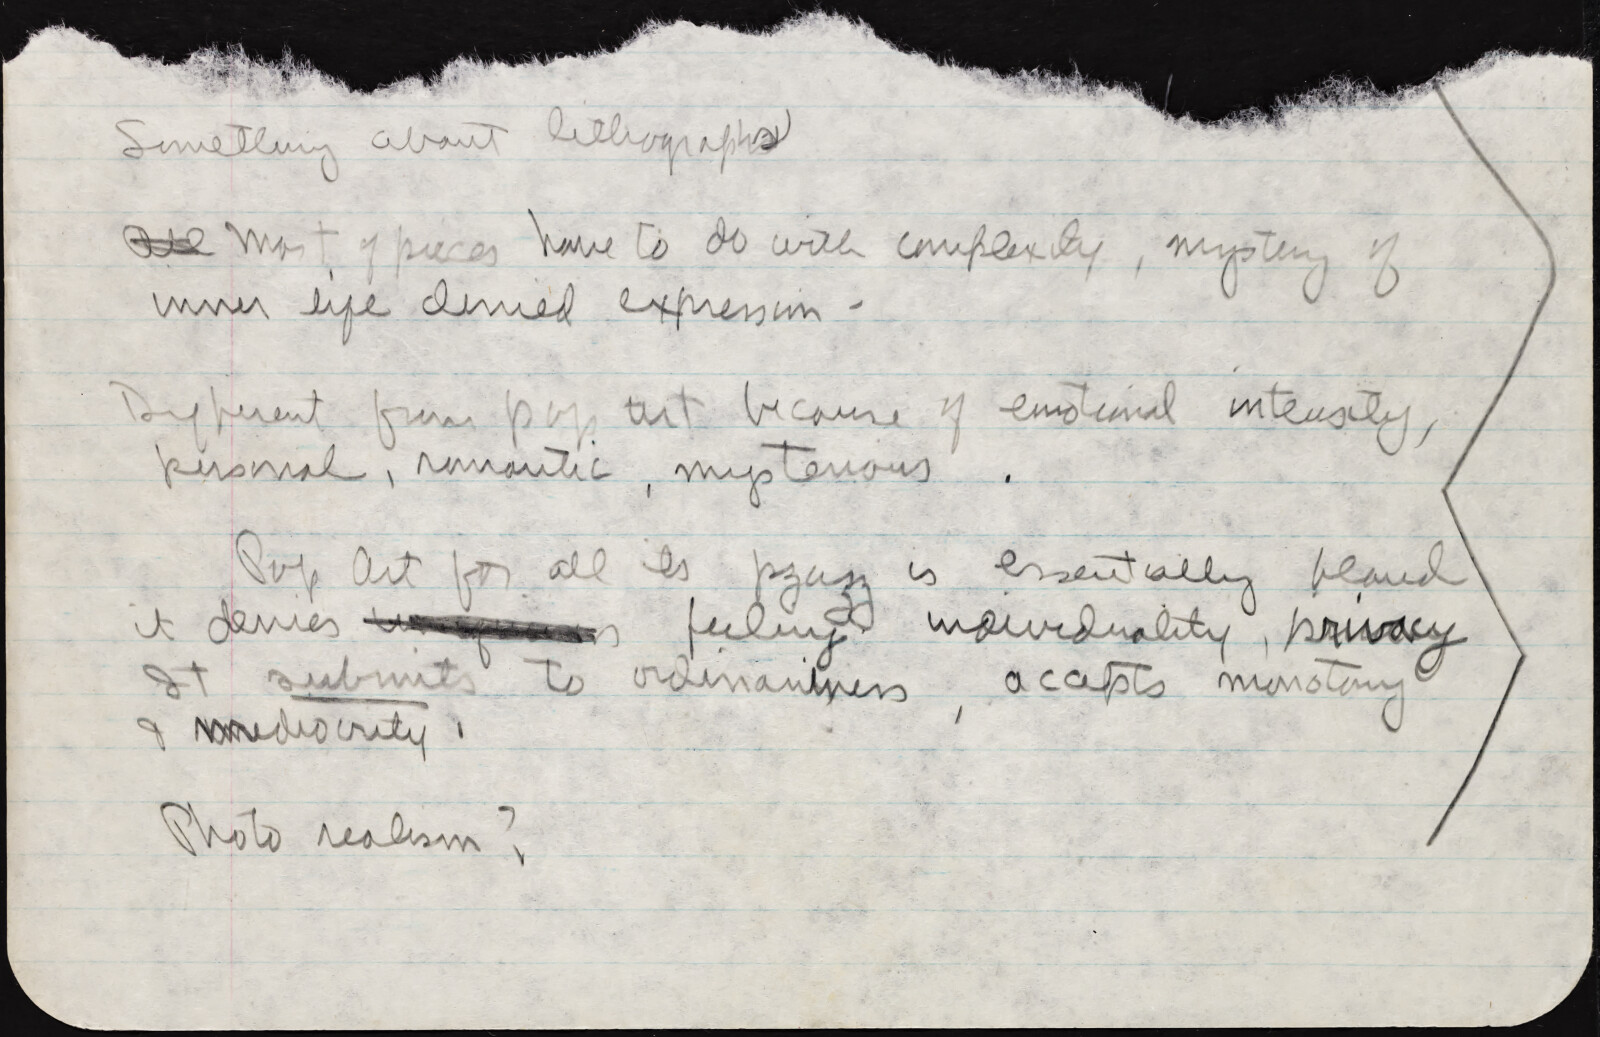 Something about lithographs
All Most of pieces have to do with complexity, mystery of
inner life denied expression -
Different from pop art because of emotional intensity,
personal, romantic, mysterious .
Pop Art for all its pzazz is essentially bland
it denies feeling individuality, privacy
It submits to ordinariness, accepts monotony
& mediocrity.
Photo realism?